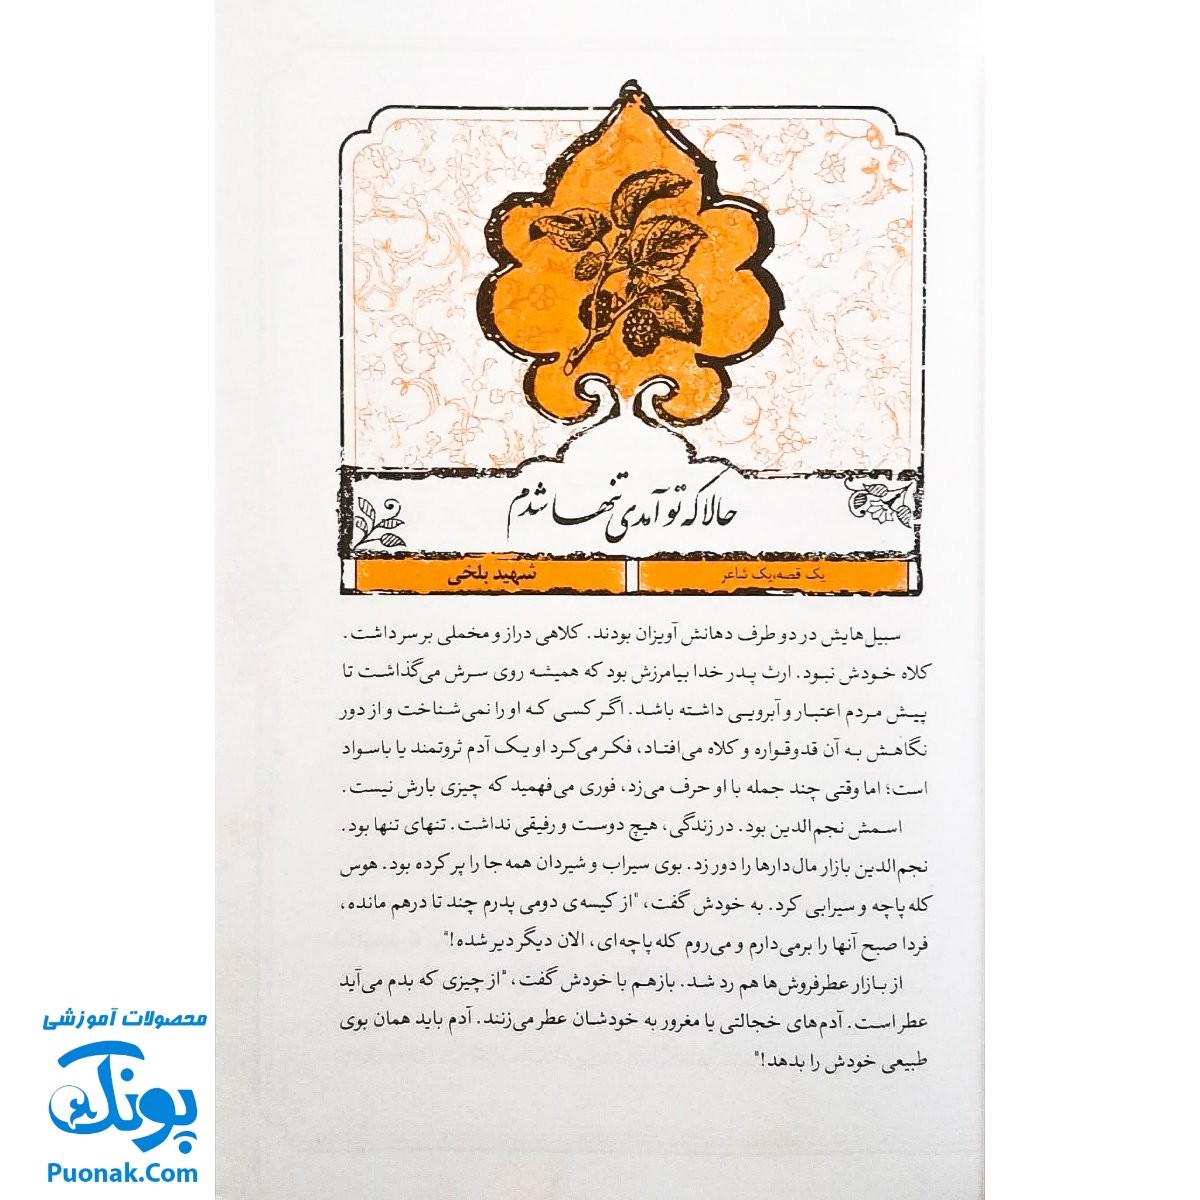 حالا که تو آمدی تنها شدم
یک قصه، یک شاعر
شهید بلخی
سبیل‌هایش در دو طرف دهانش آویزان بودند. کلاهی دراز و مخملی بر سر داشت.
کلاه خودش نبود. ارث پدر خدا بیامرزش بود که همیشه روی سرش می‌گذاشت تا
پیش مردم اعتبار و آبرویی داشته باشد. اگر کسی که او را نمی‌شناخت و از دور
نگاهش به آن قدوقواره و کلاه می‌افتاد، فکر می‌کرد او یک آدم ثروتمند یا باسواد
است؛ اما وقتی چند جمله با او حرف می‌زد، فوری می‌فهمید که چیزی بارش نیست.
اسمش نجم‌الدین بود. در زندگی، هیچ دوست و رفیقی نداشت. تنهای تنها بود.
نجم‌الدین بازار مال‌دارها را دور زد. بوی سیراب و شیردان همه‌جا را پر کرده بود. هوس
کله پاچه و سیرابی کرد. به خودش گفت، "از کیسه‌ی دومی پدرم چند تا درهم مانده،
فردا صبح آنها را برمی‌دارم و می‌روم کله پاچه‌ای، الان دیگر دیر شده!"
از بازار عطرفروش‌ها هم رد شد. بازهم با خودش گفت، "از چیزی که بدم می‌آید
عطر است. آدم‌های خجالتی یا مغرور به خودشان عطر می‌زنند. آدم باید همان بوی
طبیعی خودش را بدهد!"
محصولات آموزشی
پونک
Puonak.Com